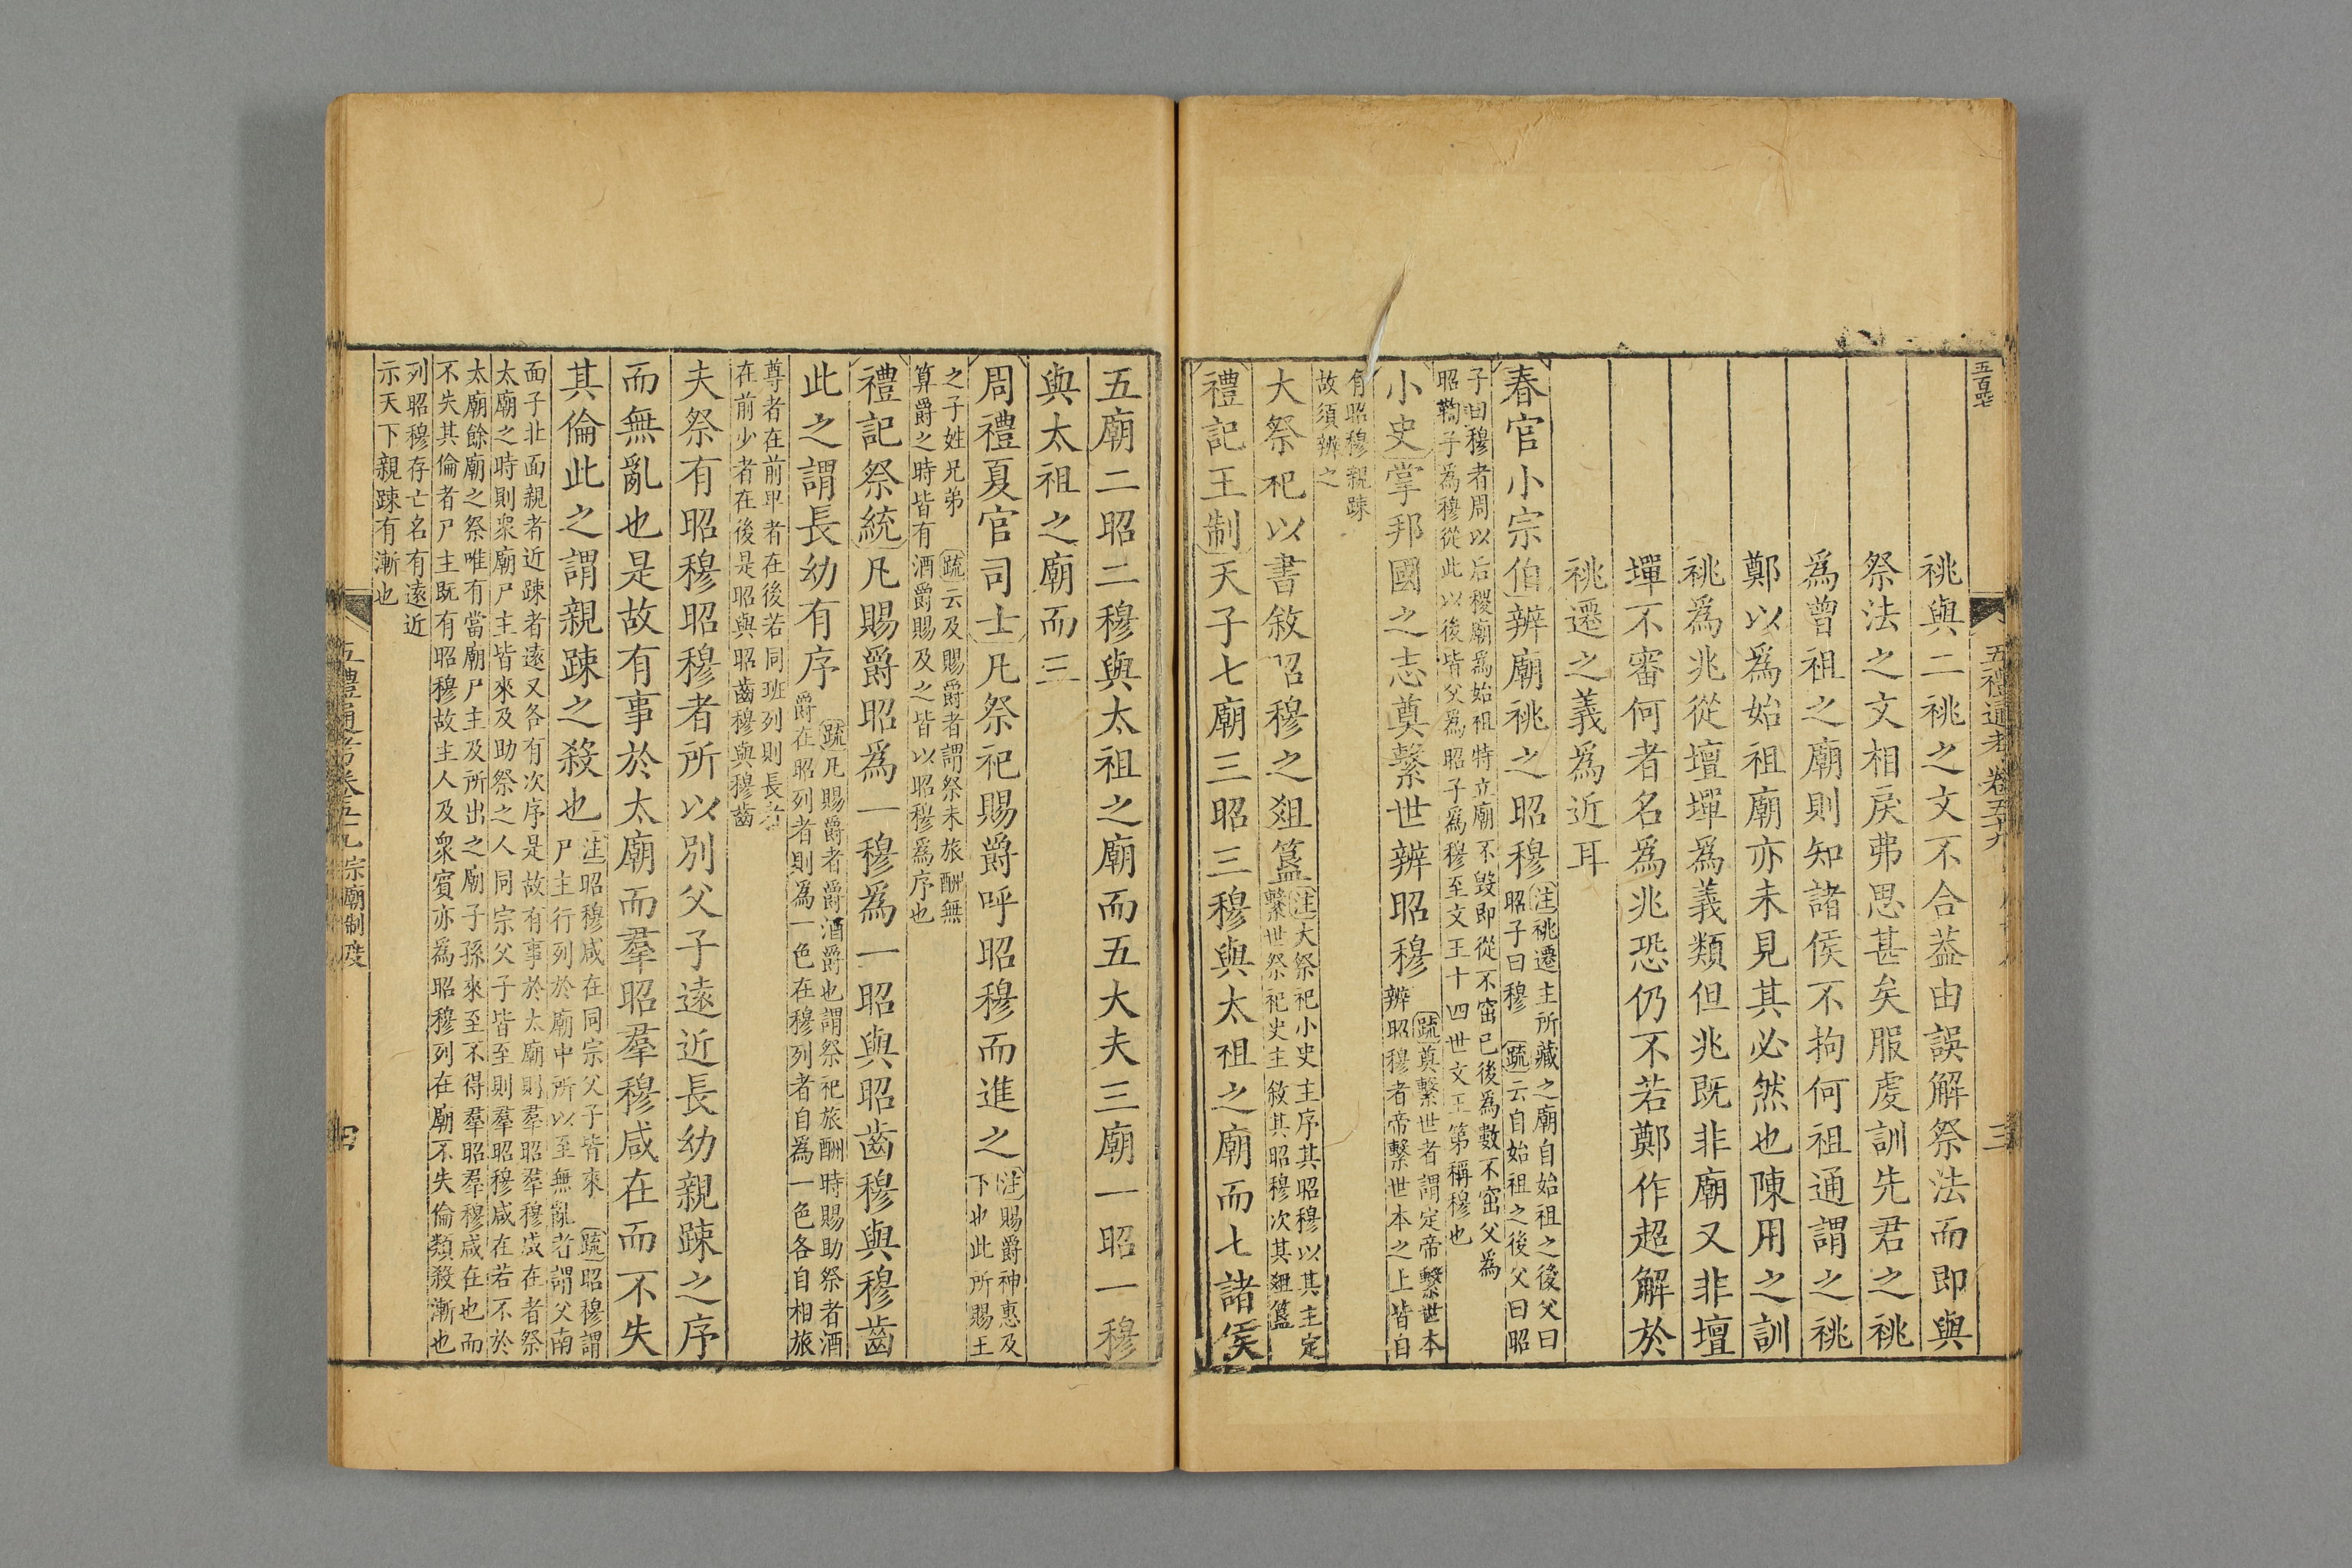 五百四七
五禮通考卷五十九
三
祧與二祧之文不合葢由誤解祭法而即與
祭法之文相戾弗思甚矣服虔訓先君之祧
爲曾祖之廟則知諸侯不拘何祖通謂之祧
鄭以爲始祖廟亦未見其必然也陳用之訓
祧爲兆從壇墠爲義類但兆既非廟又非壇
墠不審何者名爲兆恐仍不若鄭作超解於
祧遷之義爲近耳
春官小宗伯辨廟祧之昭穆
注祧遷主所藏之廟自始祖之後父曰
昭子曰穆 疏云自始祖之後父曰昭
子曰穆者周以后稷廟爲始祖特立廟不毀即從不窋已後爲數不窋父爲
昭鞠子爲穆從此以後皆父爲昭子爲穆至文王十四世文王第稱穆也
小史掌邦國之志奠繫世辨昭穆
疏奠繫世者謂定帝繫世本
辨昭穆者帝繫世本之上皆自
有昭穆親踈
故須辨之
大祭祀以書敘昭穆之俎簋
注大祭祀小史主序其昭穆以其主定
繫世祭祀史主敘其昭穆次其俎簋
禮記王制天子七廟三昭三穆與太祖之廟而七諸侯
五廟二昭二穆與太祖之廟而五大夫三廟一昭一穆
與太祖之廟而三
周禮夏官司士凡祭祀賜爵呼昭穆而進之
注賜爵神惠及
下也此所賜王
之子姓兄弟 疏云及賜爵者謂祭末旅酬無
算爵之時皆有酒爵賜及之皆以昭穆爲序也
禮記祭統凡賜爵昭爲一穆爲一昭與昭齒穆與穆齒
此之謂長幼有序
疏凡賜爵者爵酒爵也謂祭祀旅酬時賜助祭者酒
爵在昭列者則爲一色在穆列者自爲一色各自相旅
尊者在前卑者在後若同班列則長者
在前少者在後是昭與昭齒穆與穆齒
夫祭有昭穆昭穆者所以別父子遠近長幼親踈之序
而無亂也是故有事於太廟而羣昭羣穆咸在而不失
其倫此之謂親踈之殺也
注昭穆咸在同宗父子皆來 疏昭穆謂
尸主行列於廟中所以至無亂者謂父南
面子北面親者近踈者遠又各有次序是故有事於太廟則羣昭羣穆咸在者祭
太廟之時則衆廟尸主皆來及助祭之人同宗父子皆至則羣昭穆咸在若不於
太廟餘廟之祭唯有當廟尸主及所出之廟子孫來至不得羣昭羣穆咸在也而
不失其倫者尸主既有昭穆故主人及衆賓亦爲昭穆列在廟不失倫類殺漸也
列昭穆存亡名有遠近
示天下親踈有漸也
五禮通考卷五十九 宗廟制度
四